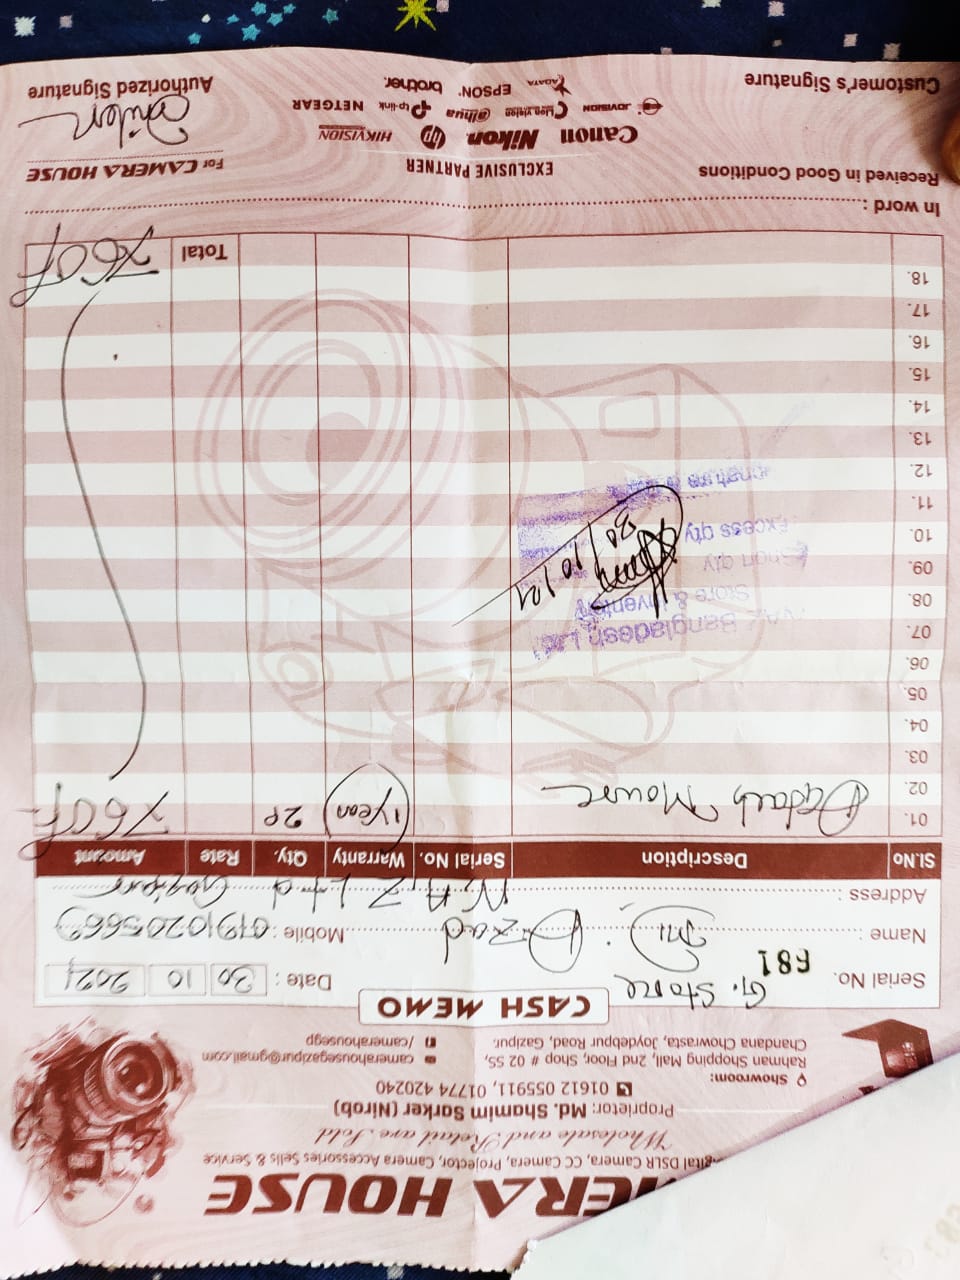 MERA HOUSE
gital DSLR Camera, CC Camera, Projector, Camera Accessories Sells & Service
Wholesale and Retail are Sold
Proprietor: Md. Shamim Sarker (Nirob)
01612 055911, 01774 420240
Showroom:
Rahman Shopping Mall, 2nd Floor, Shop # 02 SS,
Chandana Chowrasta, Joydebpur Road, Gazipur.
camerahousegazipur@gmail.com
/camerahousegp
CASH MEMO
Serial No. 681 G. Store
Date : 30 10 2021
Name : Azad
Mobile : 01910205669
Address : N.A.Z Ltd
Sl.No Description Serial No. Warranty Qty. Rate Amount
01. Mouse 1 Year 2P 760/-
02.
03.
04.
05.
06.
07.
08.
09.
10.
11.
12.
13.
14.
15.
16.
17.
18.
Bangladesh Ltd.
Store & Inventory
Short qty
Excess qty
30/10/21
Total 760/-
In word :
Received in Good Conditions
Customer's Signature
EXCLUSIVE PARTNER
Canon Nikon hp HIKVISION
JOVISION Lion vision alhua tp-link NETGEAR
ADATA EPSON brother
For CAMERA HOUSE
Authorized Signature